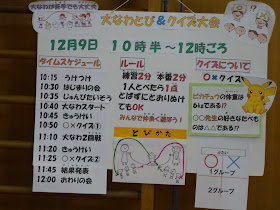 なわとびが苦手でも大丈夫
大なわとび&クイズ大会
12月9日 10時半〜12時ごろ
タイムスケジュール
10:15 うけつけ
10:30 はじまりの会
10:35 じゅんびたいそう
10:40 大なわスタート
10:45 きゅうけい
10:50 ○×クイズ①
11:10 大なわ2回戦
11:20 きゅうけい
11:25 ○×クイズ②
11:45 結果発表
12:00 おわりの会
ルール
練習2分 本番2分
1人とべたら1点
とばずにとおりぬけ
てもOK
みんなで仲良く遊ぼう!
とびかた
クイズについて
○×クイズ
ピカチュウの体重は
6kgである!?
○○先生の好きなたべも
のは△△である!?
○ ×
1グループ
2グループ